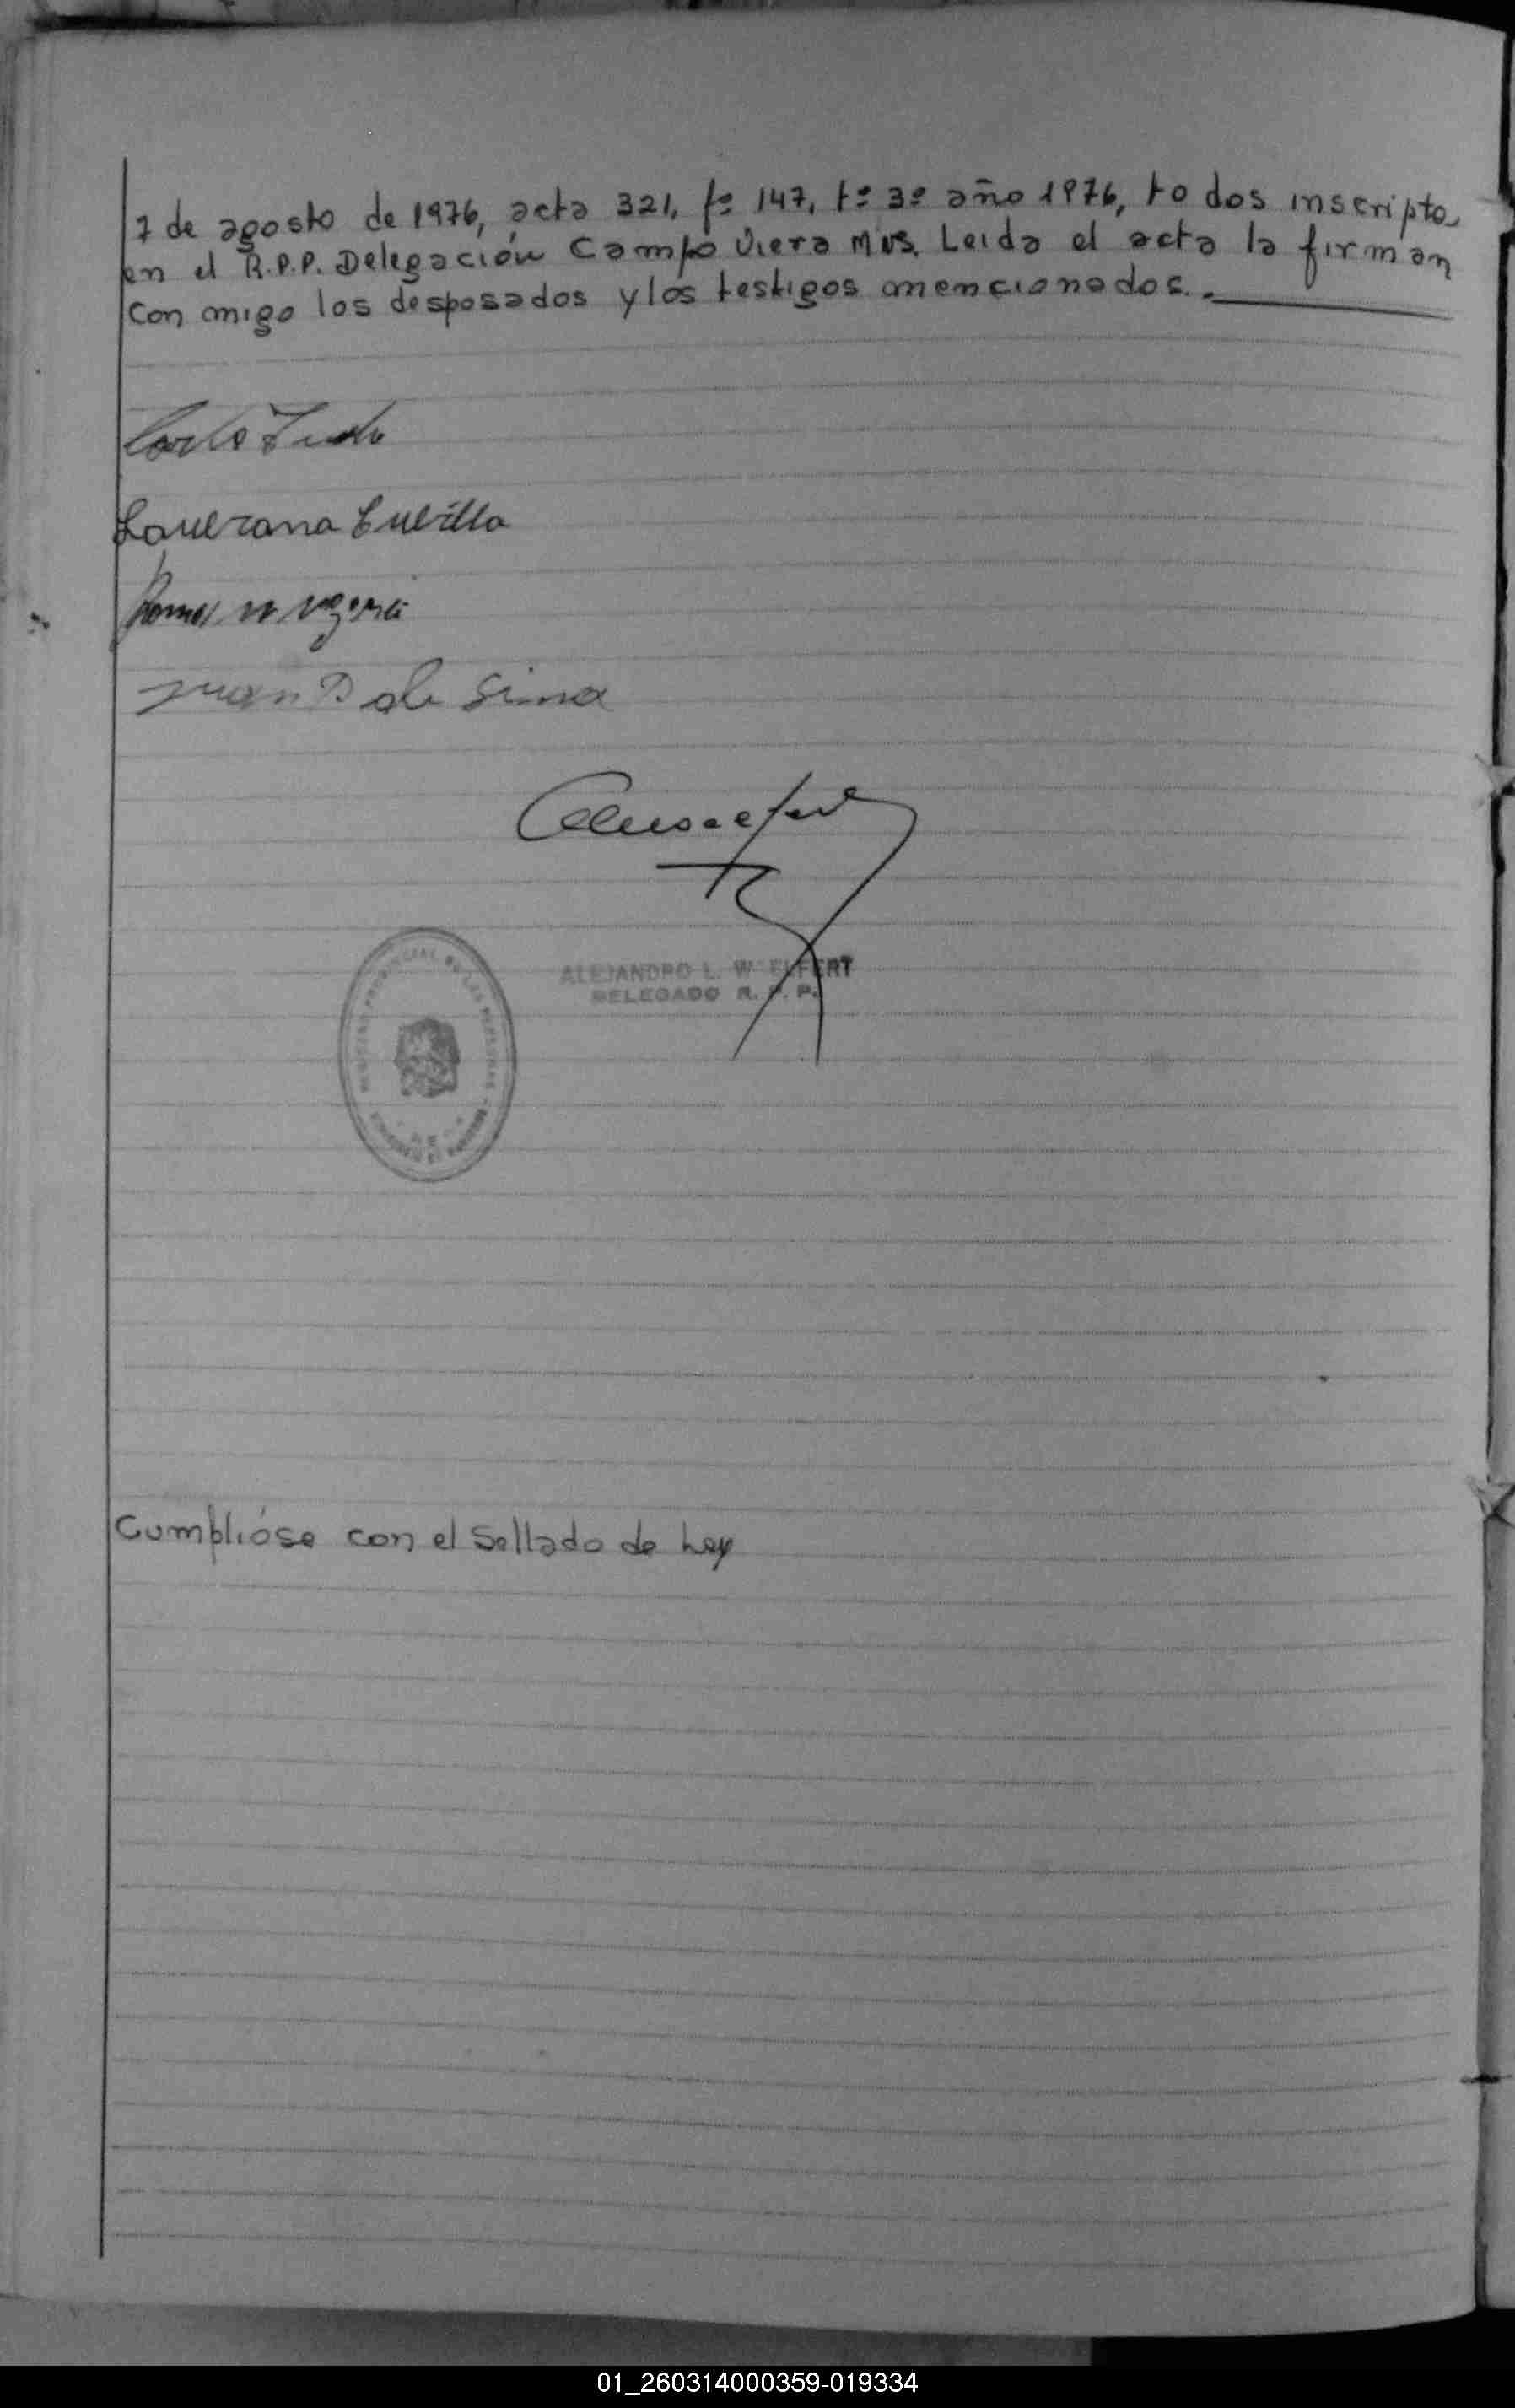 7 de agosto de 1976, acta 321, fº 147, tº 3º año 1976, to dos inscriptos
en el R.P.P. Delegación Campo Viera Mns. Leida el acta la firman
con migo los desposados y los testigos mencionados.-
Laureana Cubilla
Juan D de Lima
ALEJANDRO L. W. ELFERT
DELEGADO R. P. P.
REGISTRO PROVINCIAL DE LAS PERSONAS
Cumplióse con el Sellado de Ley
01_260314000359-019334